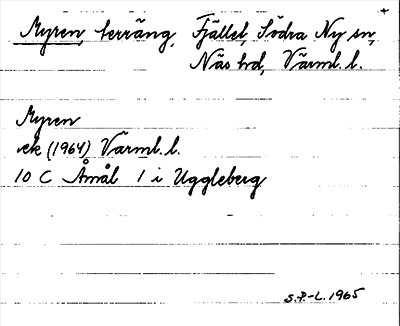 Myren, terräng, Fjället, Södra Ny sn,
Näs hd, Värml. l.
Myren
ek (1964) Värml. l.
10 C Åmål 1 i Uggleberg
S.P-L. 1965